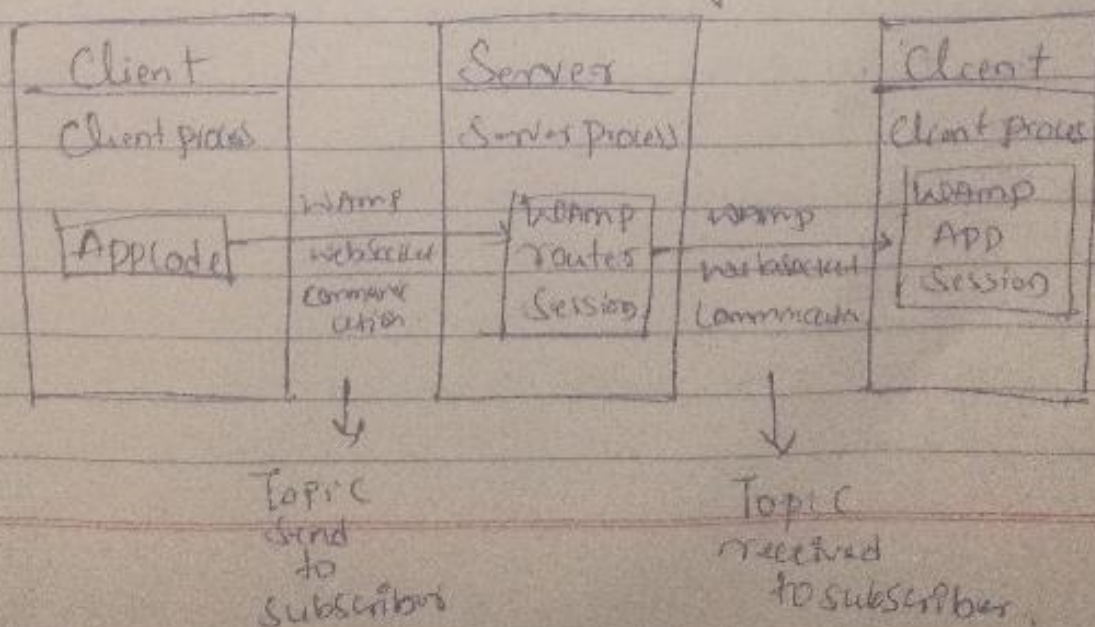 Client
Client process
App Code
WAmp
websocket
communi
cation
Server
Server process
WAmp
router
Session
WAmp
websocket
Communicatn
Client
Client proces
WAmp
App
Session
Topic
send
to
subscriber
Topic
received
to subscriber